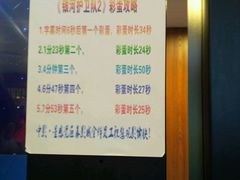 《银河护卫队2》彩蛋攻略
1.字幕时间5秒后第一个彩蛋, 彩蛋时长34秒
2.1分23秒第二个, 彩蛋时长24秒
3.4分钟第三个, 彩蛋时长50秒
4.6分47秒第四个, 彩蛋时长27秒
5.7分53秒第五个, 彩蛋时长25秒
中影·
影城全体员工祝您观影愉快!